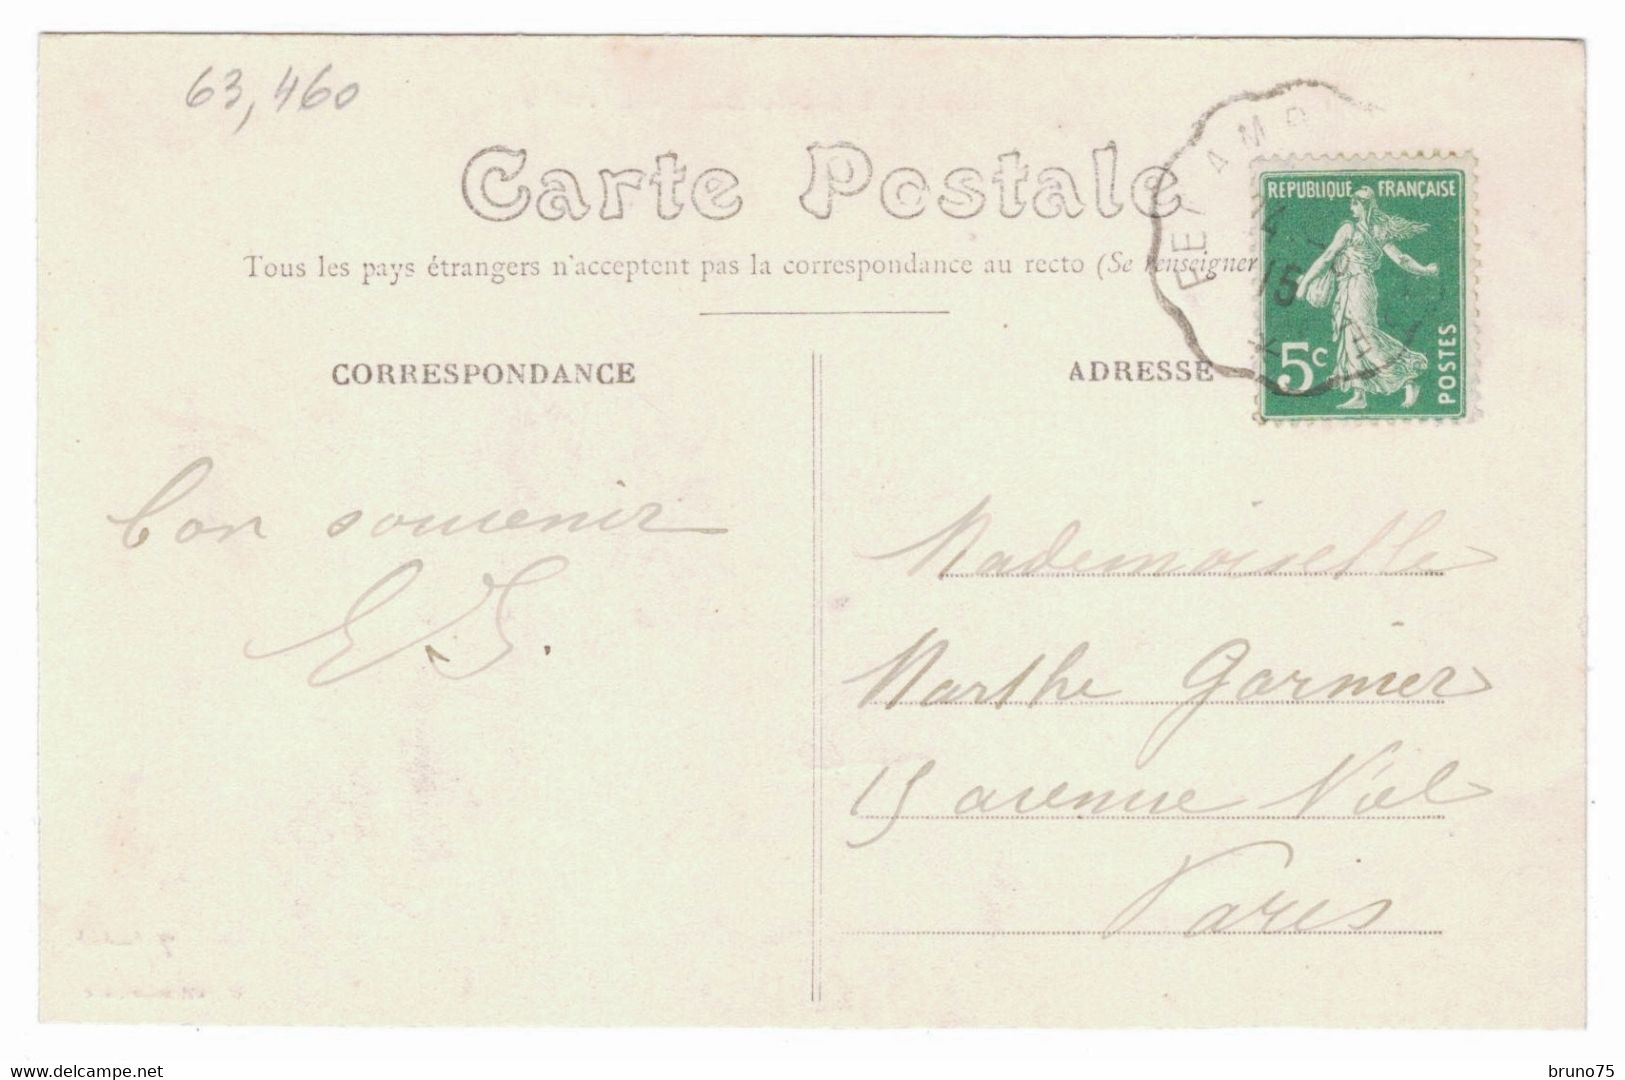 63,460
Carte Postale
Tous les pays étrangers n'acceptent pas la correspondance au recto (Se renseigner
REPUBLIQUE FRANÇAISE
15
5c
POSTES
CORRESPONDANCE
ADRESSE
bon souvenir
E G.
Mademoiselle
Marthe Garnier
15 avenue Niel
Paris
delcampe.net
bruno75